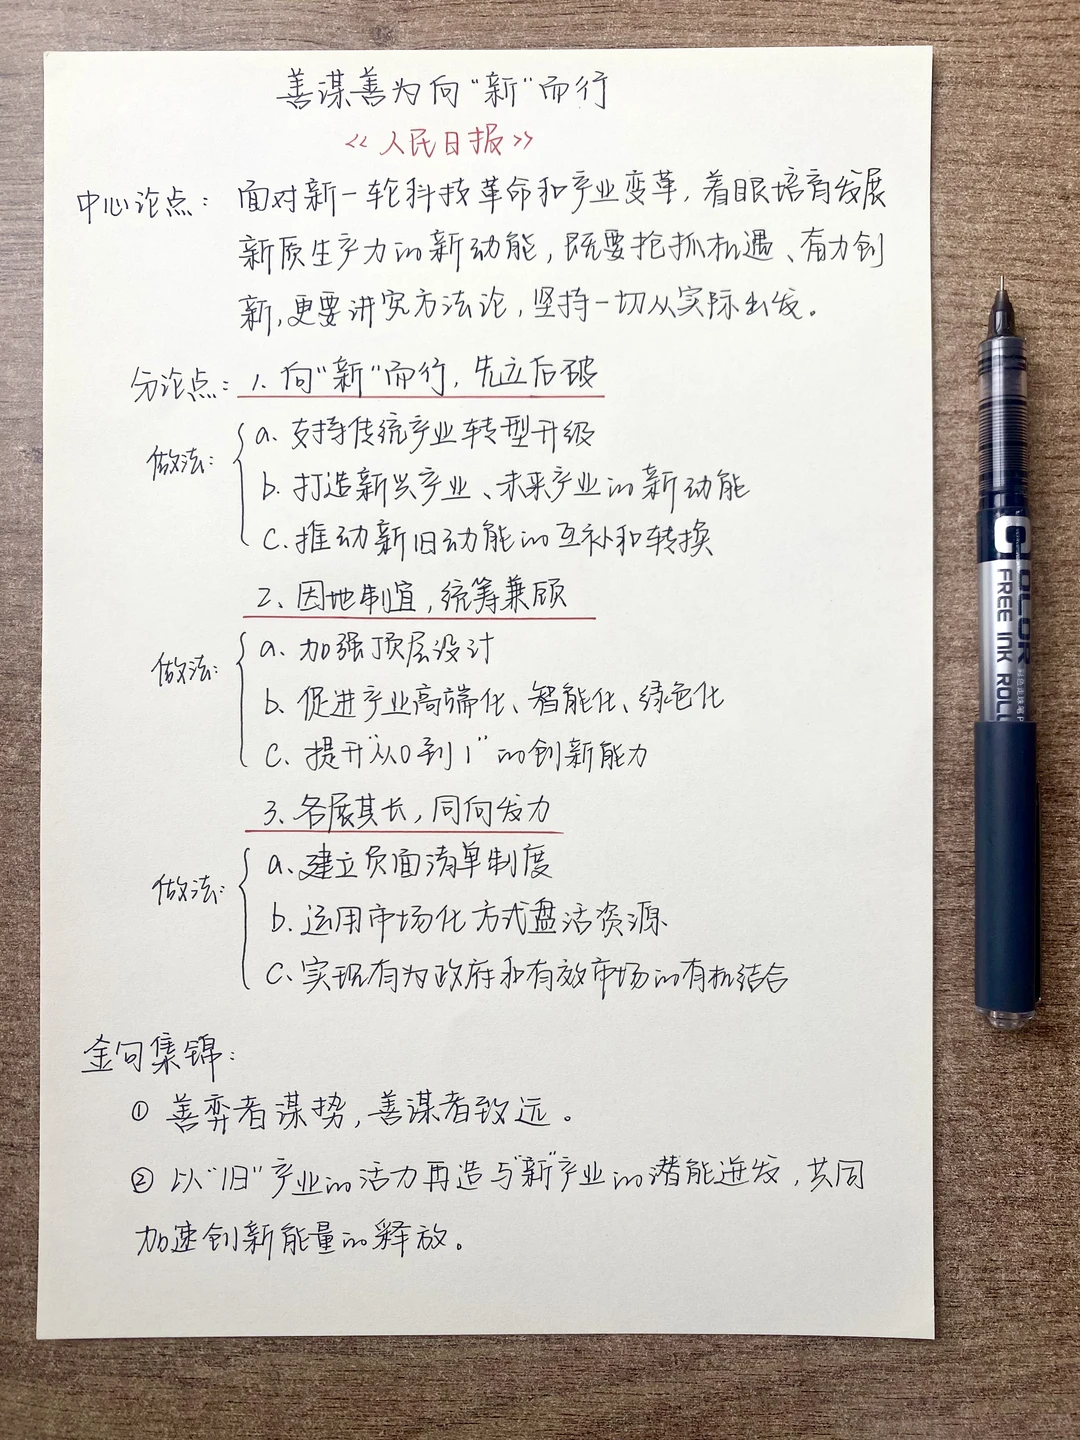 善谋善为向“新”而行
《人民日报》
中心论点：面对新一轮科技革命和产业变革，着眼培育发展
新质生产力的新动能，既要抢抓机遇、奋力创
新，更要讲究方法论，坚持一切从实际出发。
分论点：1、向“新”而行，先立后破
做法：
a、支持传统产业转型升级
b、打造新兴产业、未来产业的新动能
c、推动新旧动能的互补和转换
2、因地制宜，统筹兼顾
做法：
a、加强顶层设计
b、促进产业高端化、智能化、绿色化
c、提升“从0到1”的创新能力
3、各展其长，同向发力
做法：
a、建立负面清单制度
b、运用市场化方式盘活资源
c、实现有为政府和有效市场的有机结合
金句集锦：
① 善弈者谋势，善谋者致远。
② 以“旧”产业的活力再造与“新”产业的潜能迸发，共同
加速创新能量的释放。
COLOR
FREE INK ROLL